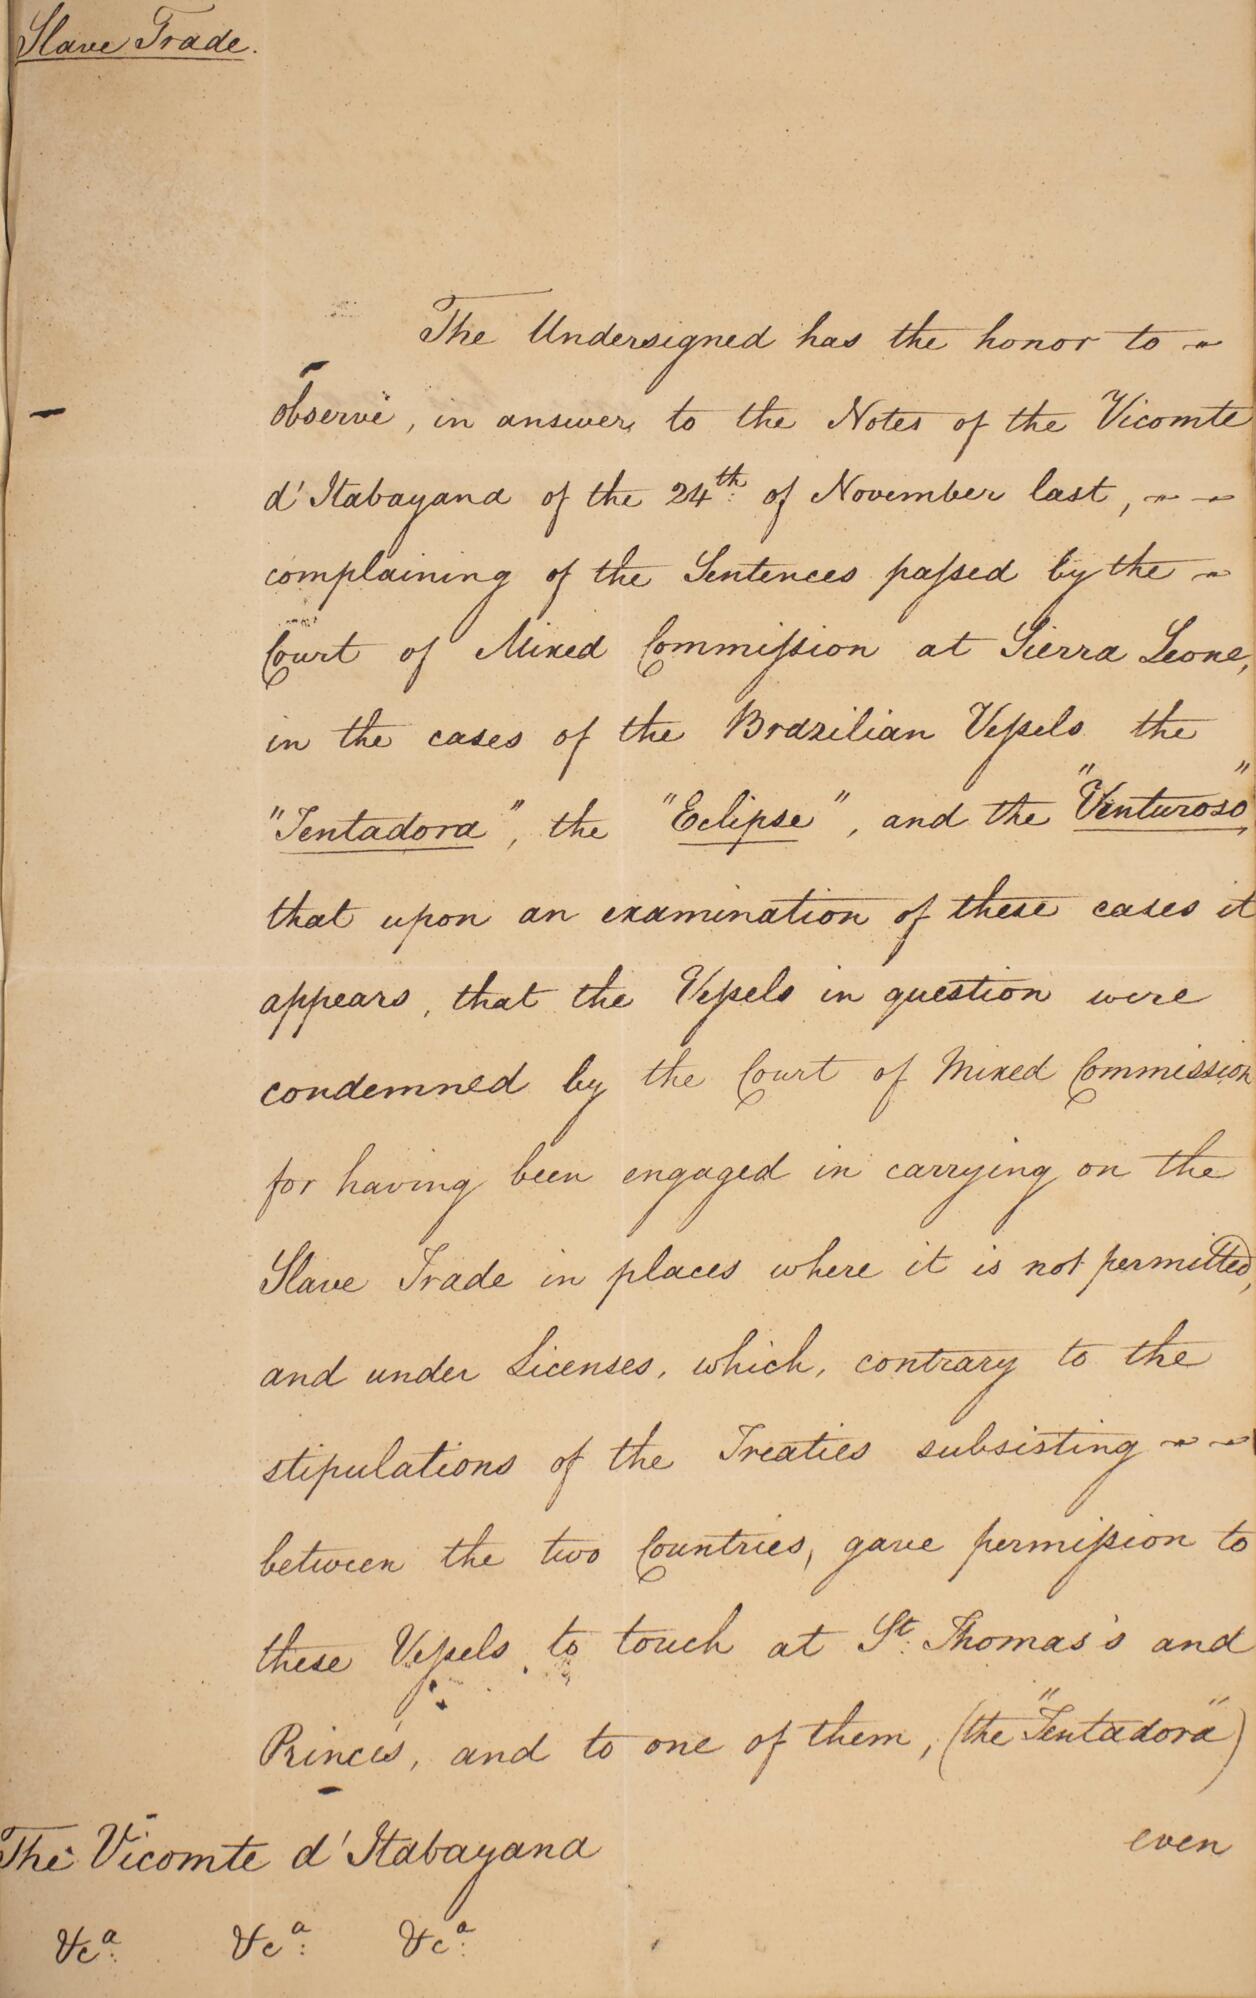 Slave Trade.
The Undersigned has the honor to
observe, in answer to the Notes of the Vicomte
d'Itabayana of the 24th: of November last,
complaining of the Sentences paſsed by the
Court of Mixed Commiſsion at Sierra Leone,
in the cases of the Brazilian Veſsels the
"Tentadora", the "Eclipse", and the "Venturoso",
that upon an examination of these cases it
appears, that the Veſsels in question were
condemned by the Court of Mixed Commission
for having been engaged in carrying on the
Slave Trade in places where it is not permitted,
and under Licenses, which, contrary to the
stipulations of the Treaties subsisting
between the two Countries, gave permiſsion to
these Veſsels to touch at St: Thomas's and
Prince's, and to one of them, (the "Tentadora")
even
The Vicomte d'Itabayana
&ca: &ca: &ca: